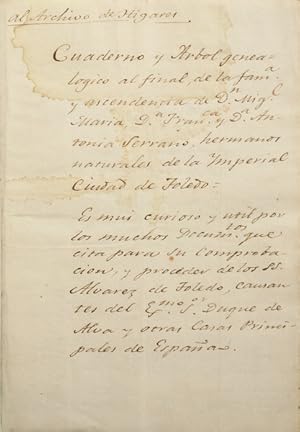 al Archivo de Higares
Cuaderno y Arbol genea-
logico al final, de la fam.ª
y ascendencia de D.n Mig.l
Maria, D.ª Fran.ca y D.ª An-
tonia Serrano, hermanos
naturales de la Ymperial
Ciudad de Toledo=
Es mui curioso y util por
los muchos Docum.tos que
cita para su Comproba-
cion, y proceder de los SS.
Alvarez de Toledo, causan-
tes del Exmo S.or Duque de
Alva y otras Casas Princi-
pales de España.